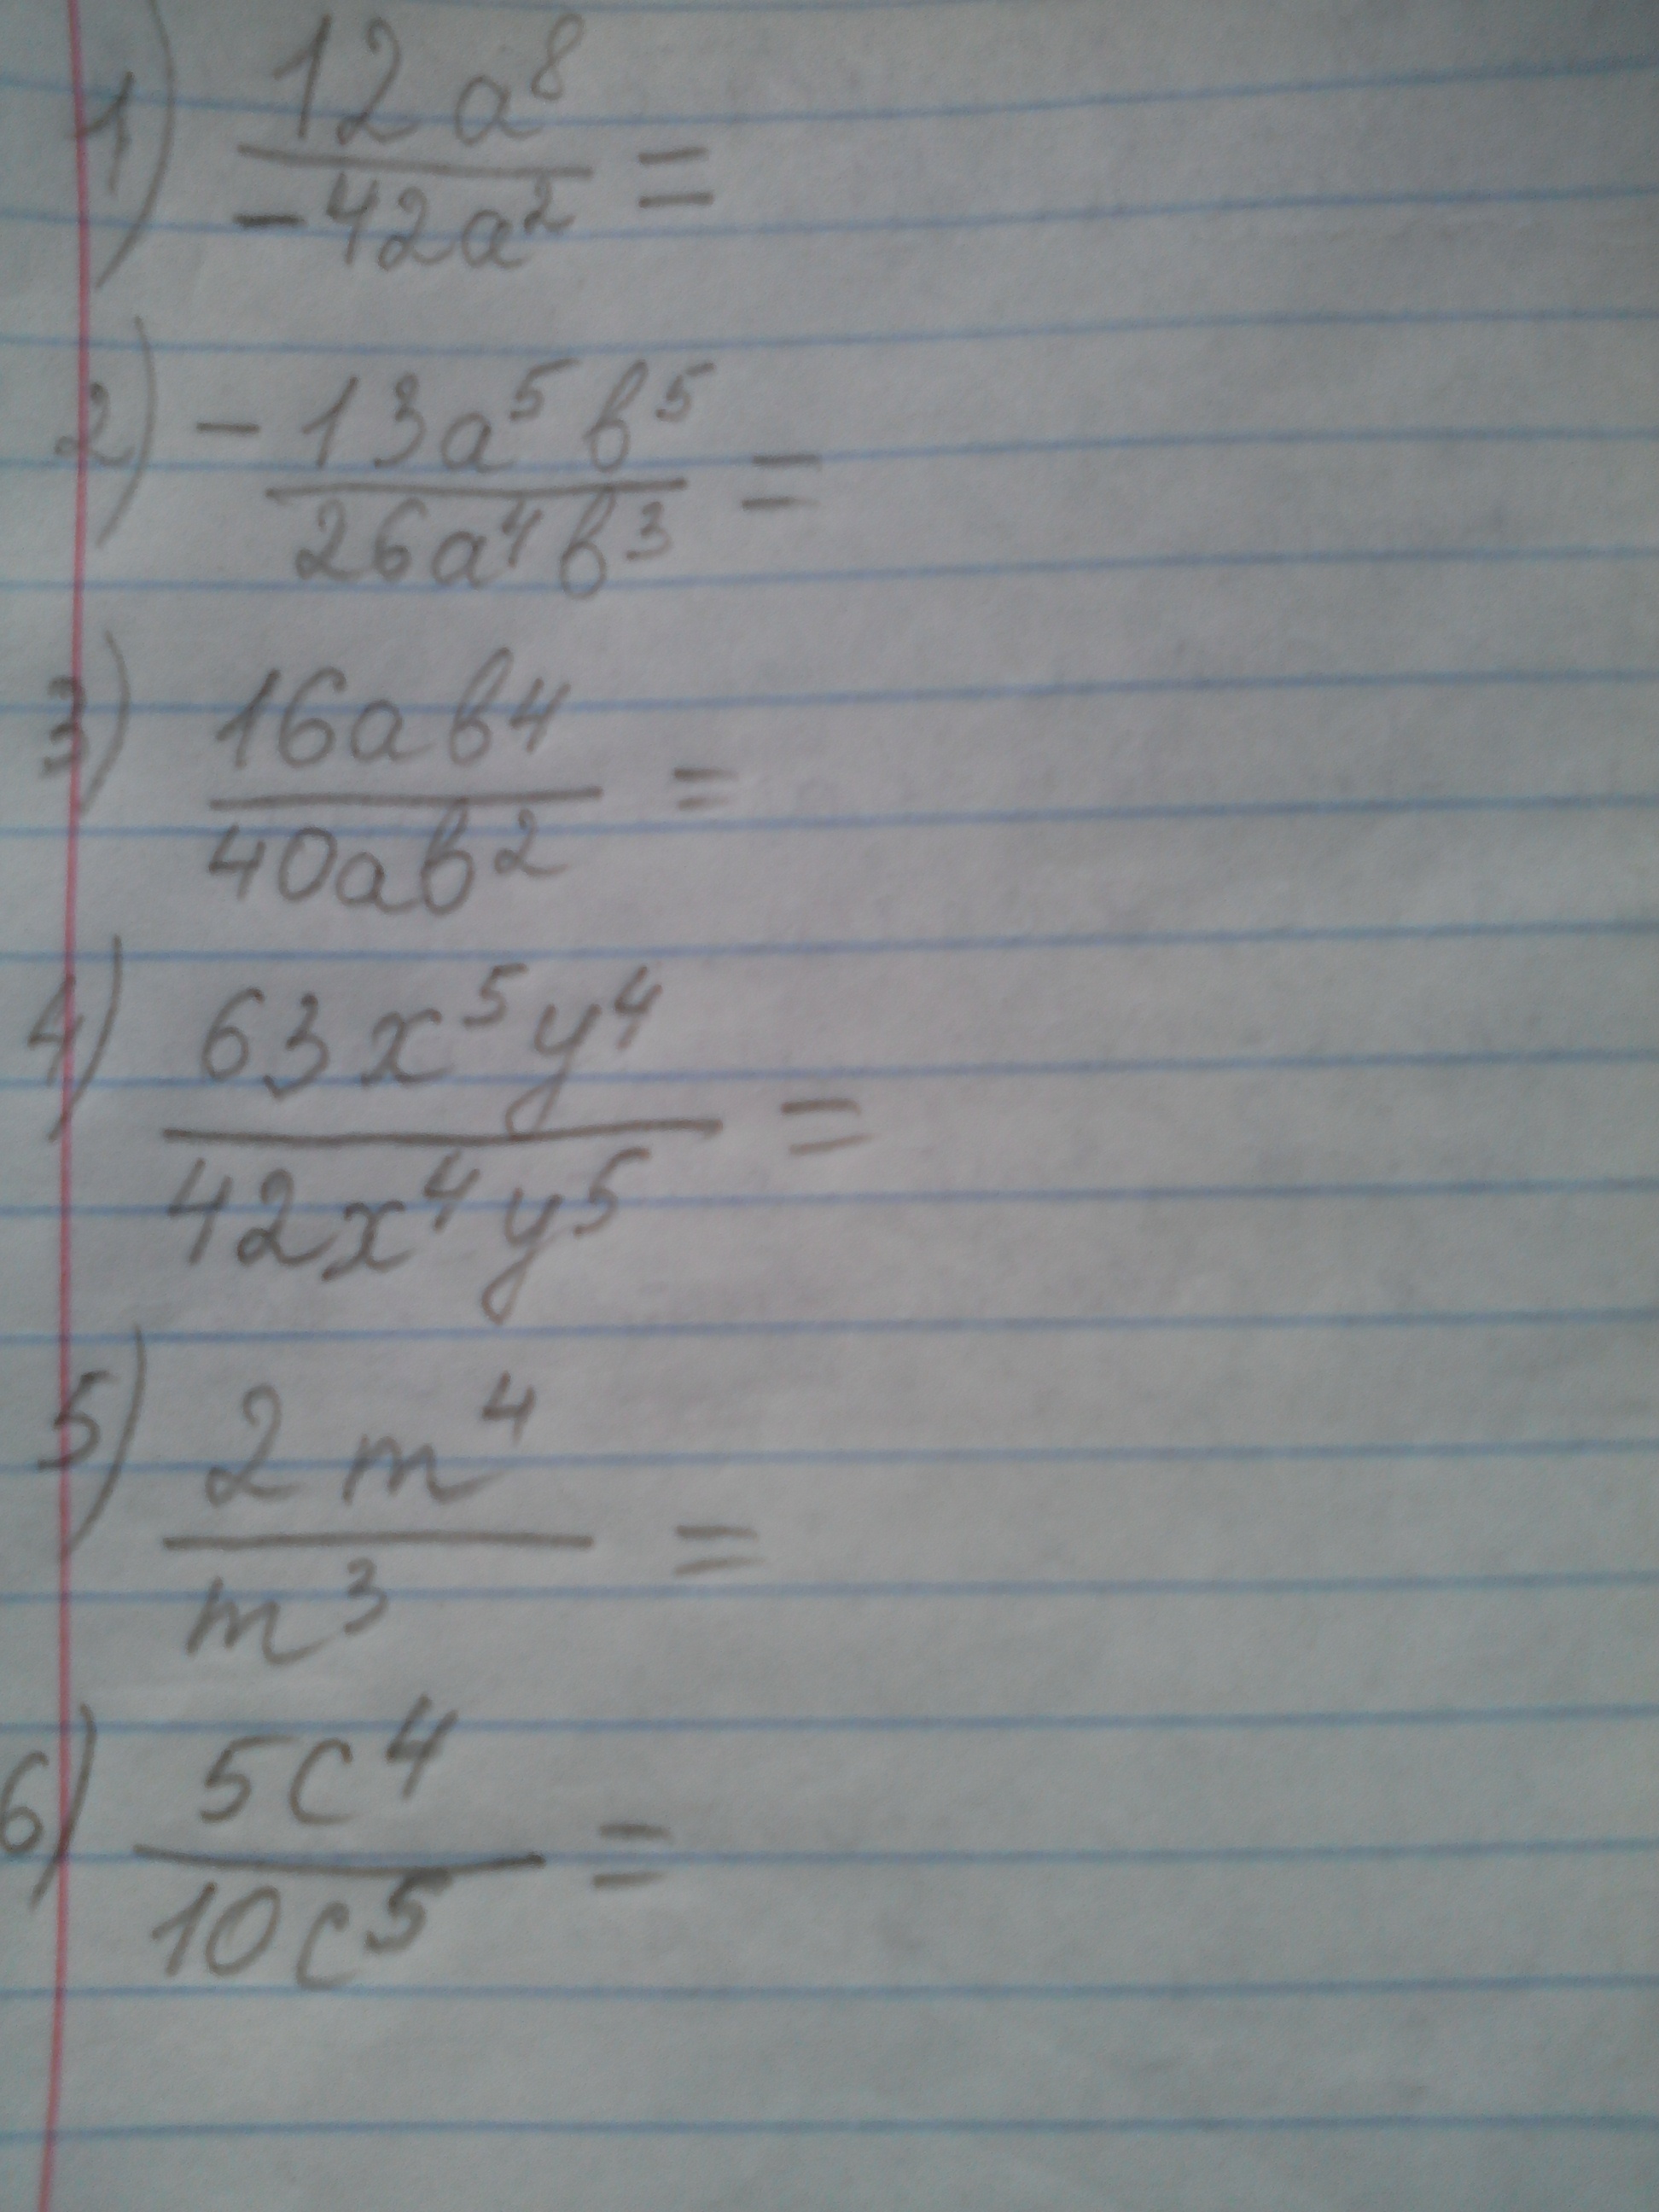 1) 12a⁸
-42a² =
2) -13a⁵в⁵
26a⁴в³ =
3) 16aв4
40aв² =
4) 63x⁵y⁴
42x⁴y⁵ =
5) 2m⁴
m³ =
6) 5c⁴
10c⁵ =